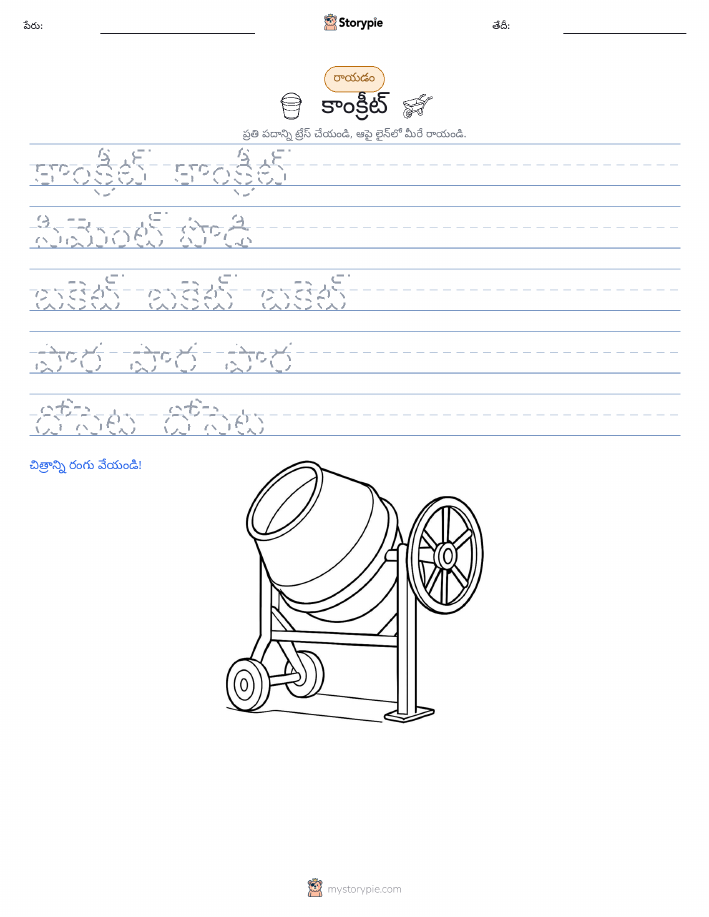 పేరు:
Storypie
తేదీ:
రాయడం
కాంక్రీట్
ప్రతి పదాన్ని ట్రేస్ చేయండి, ఆపై లైన్‌లో మీరే రాయండి.
కాంక్రీట్ కాంక్రీట్
సిమెంట్ పొడి
బకెట్ బకెట్ బకెట్
పార పార పార
దోసిట దోసిట
చిత్రాన్ని రంగు వేయండి!
mystorypie.com